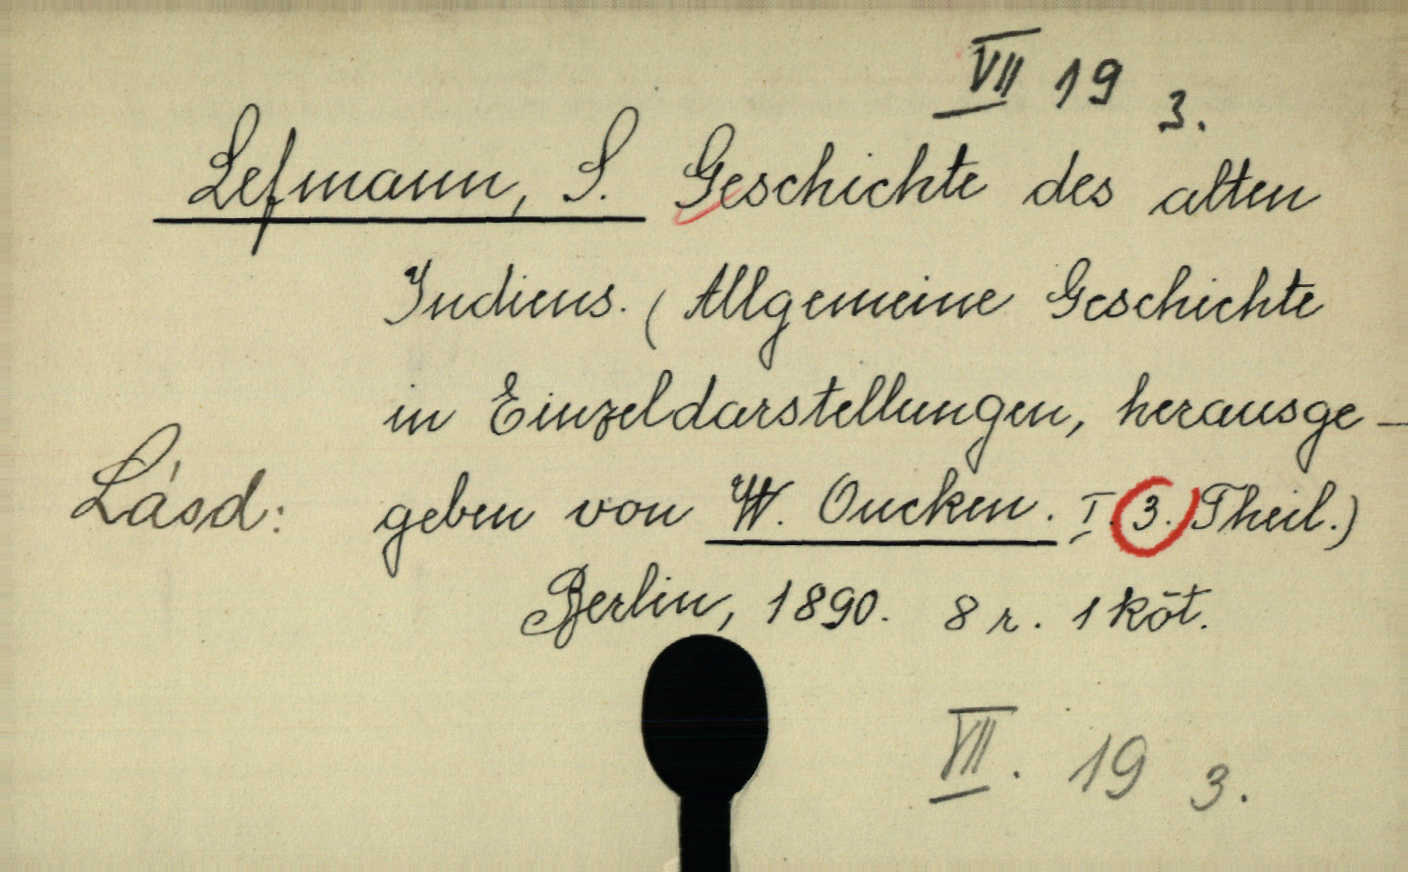 VII 19 3.
Lefmann, S. Geschichte des alten
Indiens. (Allgemeine Geschichte
in Einzeldarstellungen, herausge-
Lásd: geben von W. Oncken. I. 3. Theil.)
Berlin, 1890. 8 r. 1 köt.
VII. 19 3.